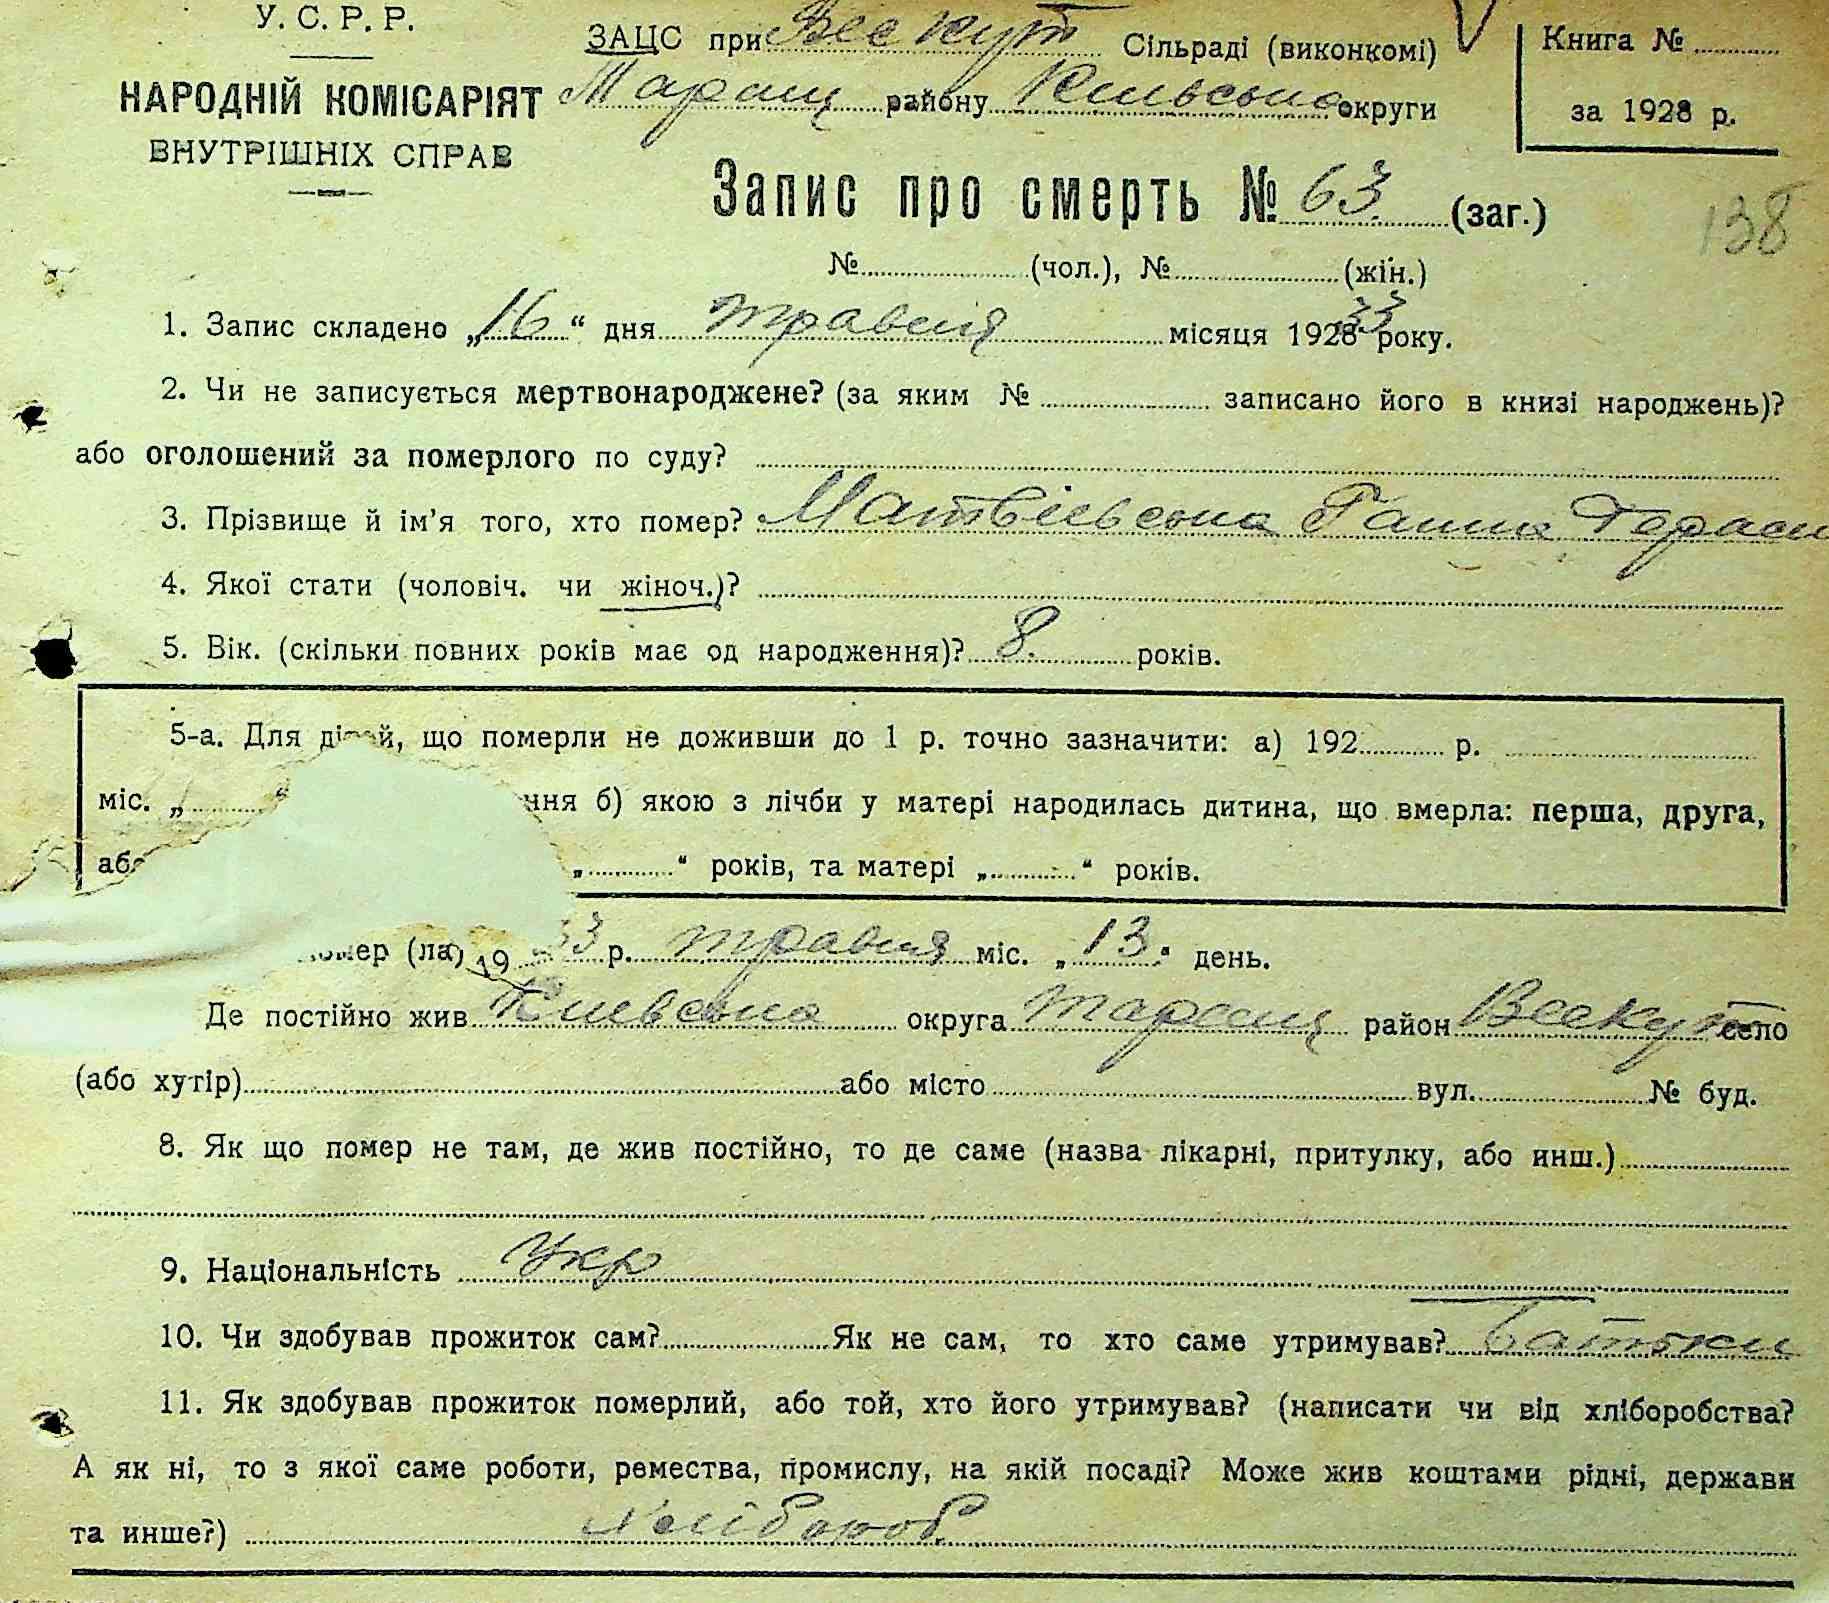 У. С. Р. Р.
НАРОДНІЙ КОМІСАРІЯТ
ВНУТРІШНІХ СПРАВ
ЗАЦС при Веекут Сільраді (виконкомі)
Таращ району Київська округи
Книга №
за 1928 р.
138
Запис про смерть № 63. (заг.)
№ (чол.), № (жін.)
1. Запис складено „16“ дня травня місяця 192833 року.
2. Чи не записується мертвонароджене? (за яким № записано його в книзі народжень)?
або оголошений за померлого по суду?
3. Прізвище й ім'я того, хто помер? Матвіевська Ганна Тараси
4. Якої стати (чоловіч. чи жіноч.)?
5. Вік. (скільки повних років має од народження)? 8. років.
5-а. Для дітей, що померли не доживши до 1 р. точно зазначити: а) 192 р.
міс. „ “ ння б) якою з лічби у матері народилась дитина, що вмерла: перша, друга,
або „ “ років, та матері „ “ років.
помер (ла) 19 33 р. травня міс. „13“ день.
Де постійно жив Київська округа Таращ район Веекут село
(або хутір) або місто вул. № буд.
8. Як що помер не там, де жив постійно, то де саме (назва лікарні, притулку, або инш.)
9. Національність Укр
10. Чи здобував прожиток сам? Як не сам, то хто саме утримував? Батьки
11. Як здобував прожиток померлий, або той, хто його утримував? (написати чи від хліборобства?
А як ні, то з якої саме роботи, ремества, промислу, на якій посаді? Може жив коштами рідні, держави
та инше?) Хлібороб.